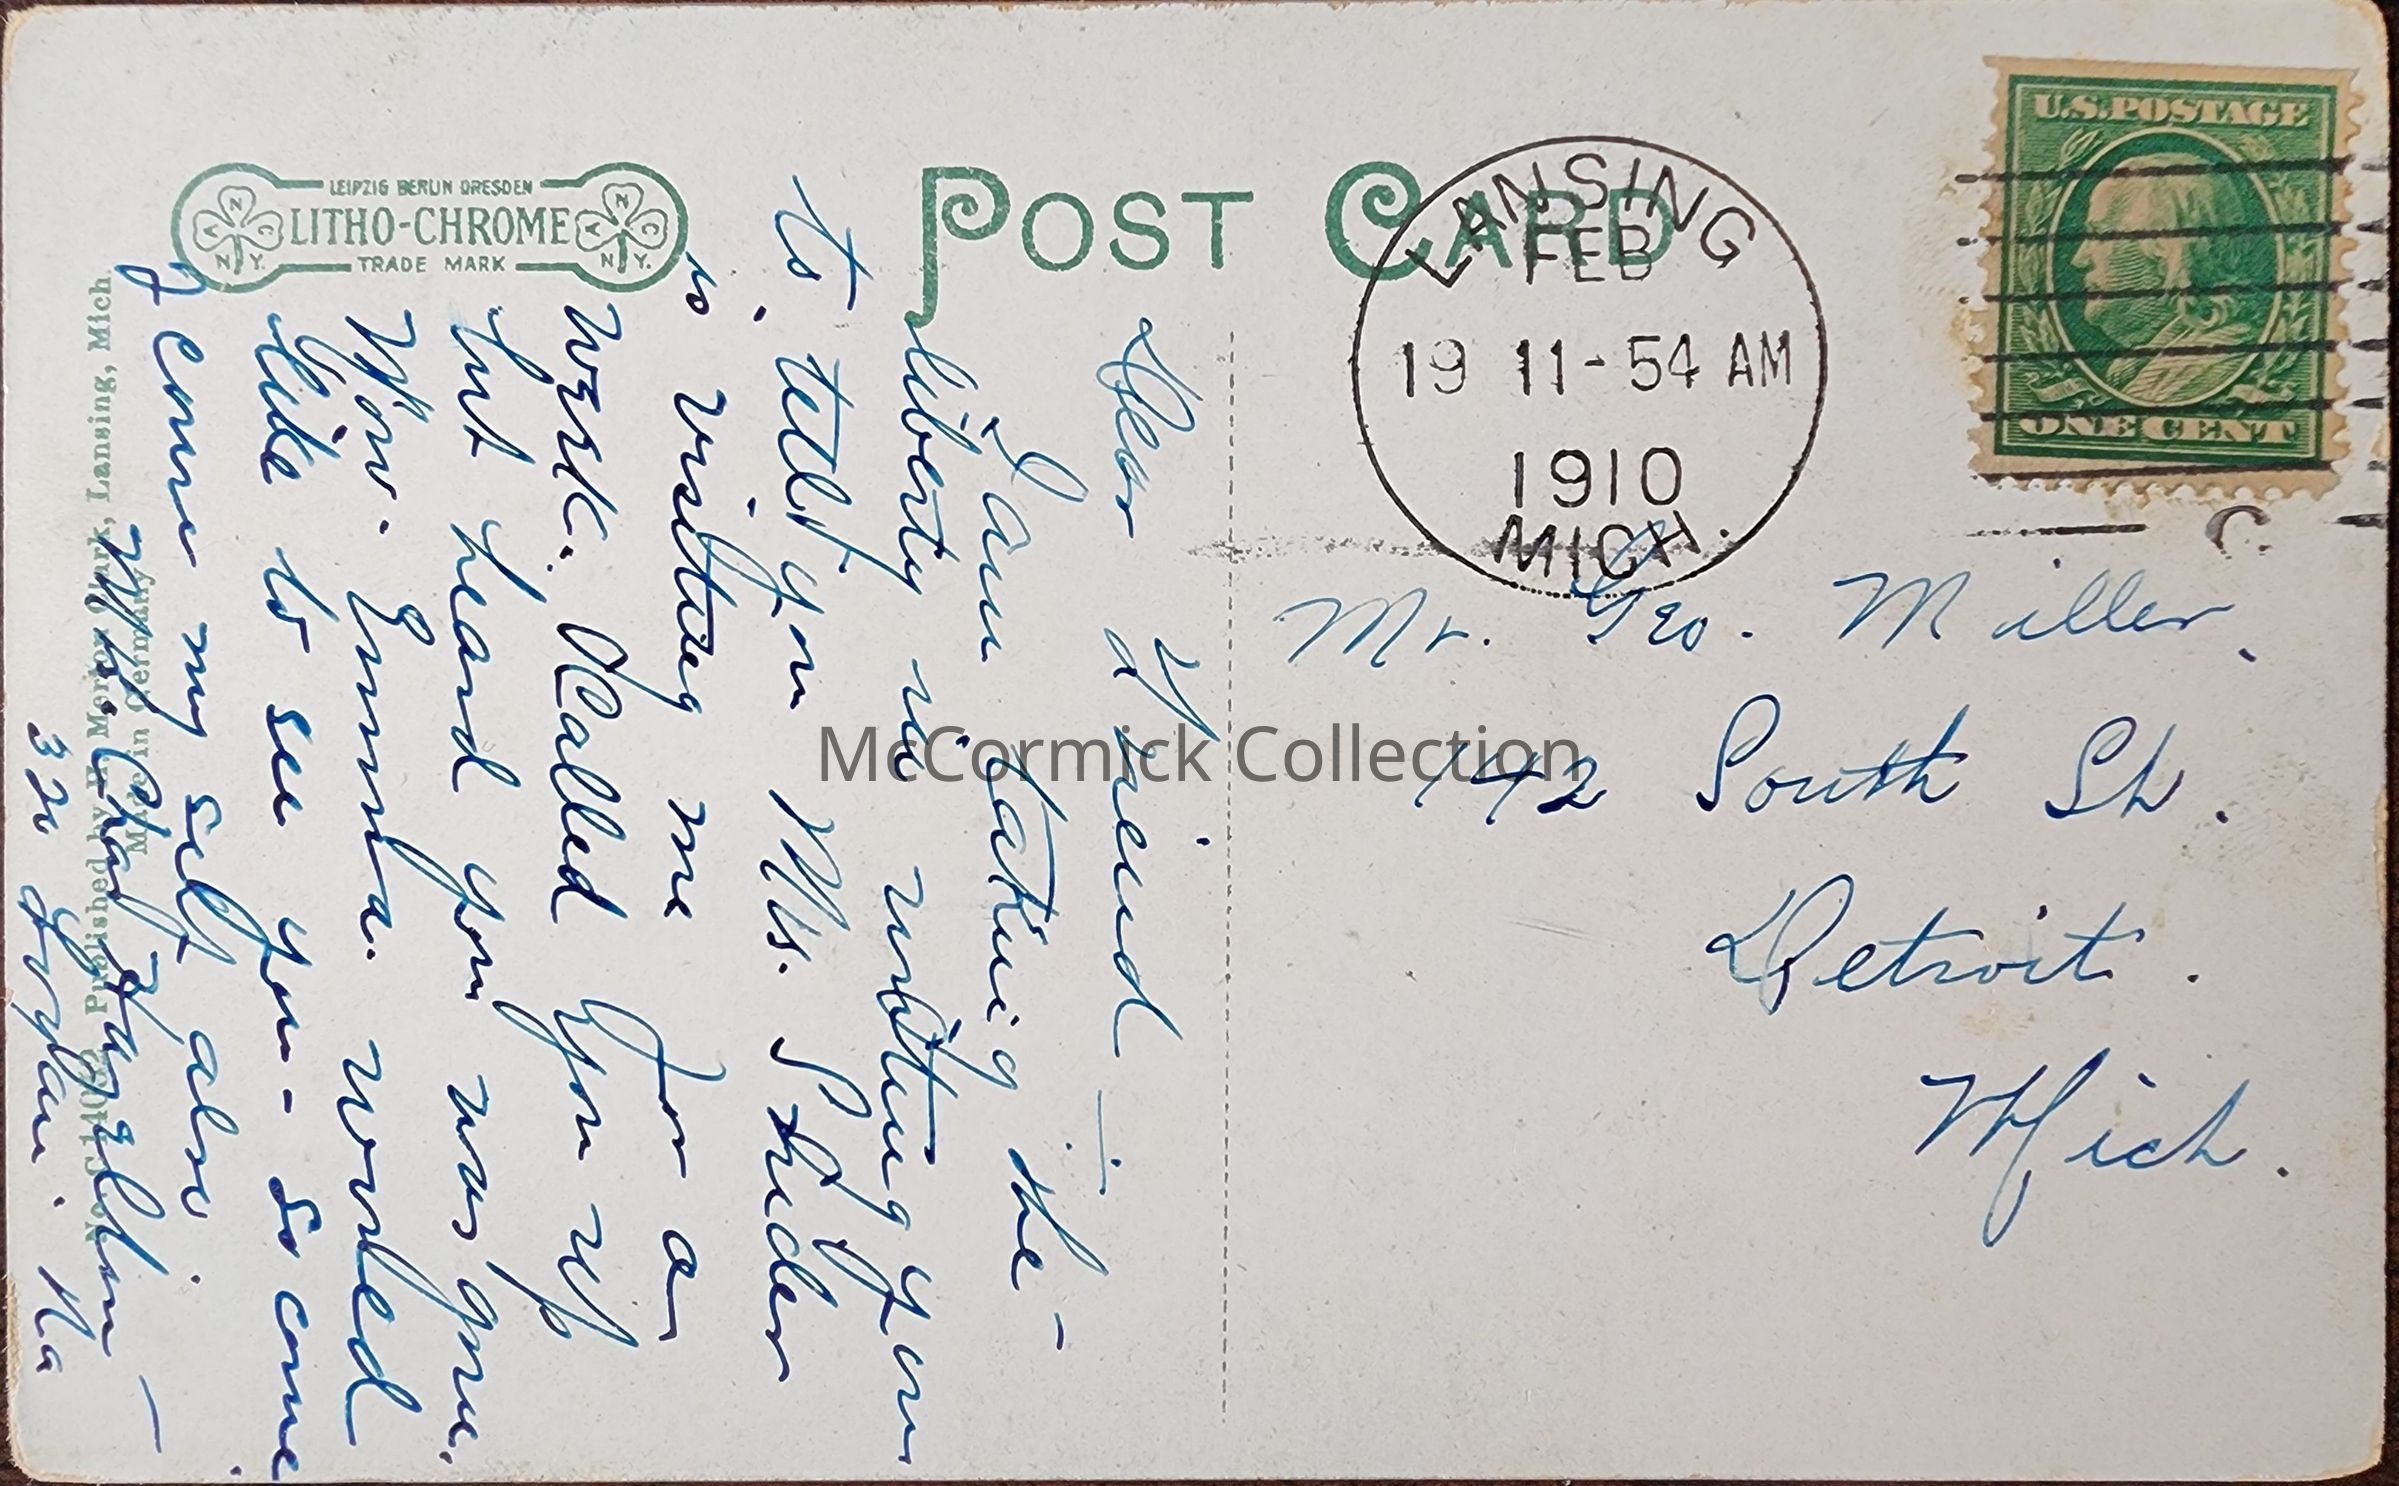 POST CARD
LEIPZIG BERLIN DRESDEN
LITHO-CHROME
TRADE MARK
N C N Y.
N C N Y.
LANSING
FEB
19 11-54 AM
1910
MICH.
U.S. POSTAGE
ONE CENT
C.
Mr. Geo. Miller,
142 South St.
Detroit.
Mich.
Dear Friend
I am taking the -
liberty in writing you
to tell you Mrs. Studer
is visiting me for a
week. Called you up
but heard you was gone.
Mrs. Emma. would
like to see you - so come
I come my self also.
Mrs. Chas
McCormick Collection
Published by Clark, Lansing, Mich.
Made in Germany